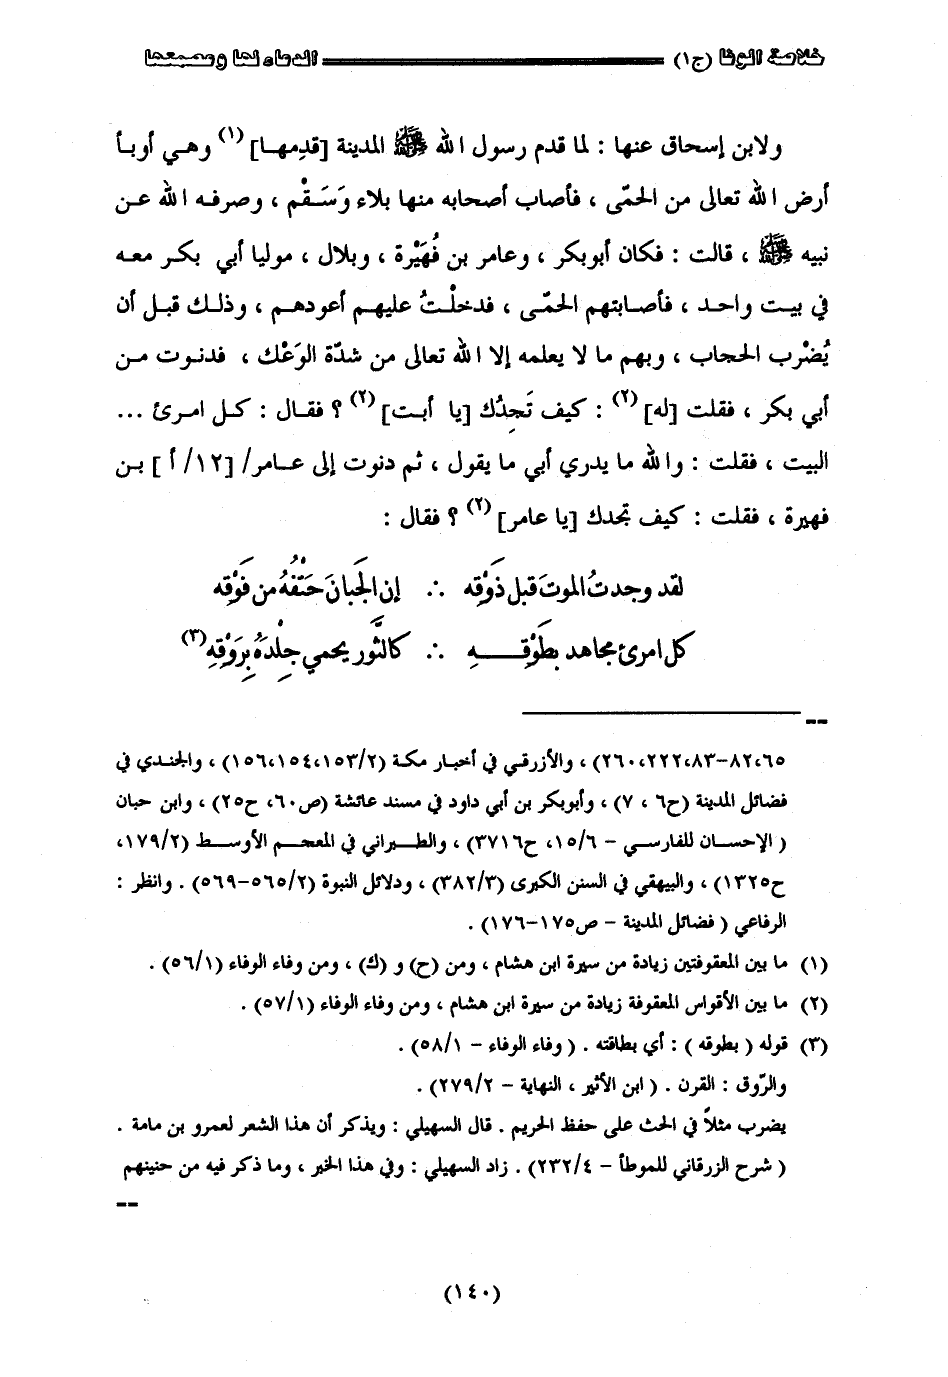 خلاصة الوفا (ج١) الدعاء لها وبصيعها
ولابن إسحاق عنها : لما قدم رسول الله ﷺ المدينة [قدِمها] (١) وهي أوبأ
أرض الله تعالى من الحمّى ، فأصاب أصحابه منها بلاء وَسَـقْم ، وصرفـه الله عـن
نبيه ﷺ ، قالت : فكان أبوبكر ، وعامر بن فُهَيْرة ، وبلال ، موليا أبي بكـر معـه
في بيـت واحـد ، فأصابتهم الحمّـى ، فدخلْـتُ عليهـم أعودهـم ، وذلـك قبـل أن
يُضْرب الحجاب ، وبهم ما لا يعلمه إلا الله تعالى من شدّة الوَعْك ، فدنـوت مـن
أبي بكر ، فقلت [له] (٢) : كيف تَجِدُك [يا أبت] (٢) ؟ فقـال : كـل امـرئ ...
البيت ، فقلت : والله ما يدري أبي ما يقول ، ثم دنوت إلى عـامر/ [١٢/ أ ] بـن
فهيرة ، فقلت : كيف تجدك [يا عامر] (٢) ؟ فقال :
لقد وجدتُ الموتَ قبل ذَوْقِه ∴ إن الجَبانَ حَتْفُهُ من فَوْقِه
كل امرئ مجاهد بطَوْقـــه ∴ كالثَّور يحمي جِلْدَهُ بِرَوْقِهِ (٣)
--
٨٢،٦٥-٢٦٠،٢٢٢،٨٣) ، والأزرقـي في أخبـار مكـة (١٥٦،١٥٤،١٥٣/٢) ، والجنـدي في
فضائل المدينة (ح٦ ، ٧) ، وأبوبكر بن أبي داود في مسند عائشة (ص٦٠، ح٢٥) ، وابن حبان
( الإحسـان للفارسـي - ١٥/٦، ح٣٧١٦) ، والطـبراني في المعجـم الأوسـط (١٧٩/٢،
ح١٣٢٥) ، والبيهقي في السنن الكبرى (٣٨٢/٣) ، ودلائل النبوة (٥٦٥/٢-٥٦٩) . وانظر :
الرفاعي ( فضائل المدينة - ص١٧٥-١٧٦) .
(١) ما بين المعقوفتين زيادة من سيرة ابن هشام ، ومن (ح) و (ك) ، ومن وفاء الوفاء (٥٦/١) .
(٢) ما بين الأقواس المعقوفة زيادة من سيرة ابن هشام ، ومن وفاء الوفاء (٥٧/١) .
(٣) قوله ( بطوقه ) : أي بطاقته . ( وفاء الوفاء - ٥٨/١) .
والرّوق : القرن . ( ابن الأثير ، النهاية - ٢٧٩/٢) .
يضرب مثلاً في الحث على حفظ الحريم . قال السهيلي : ويذكر أن هذا الشعر لعمرو بن مامة .
( شرح الزرقاني للموطأ - ٢٣٢/٤) . زاد السهيلي : وفي هذا الخبر ، وما ذكر فيه من حنينهم
--
(١٤٠)